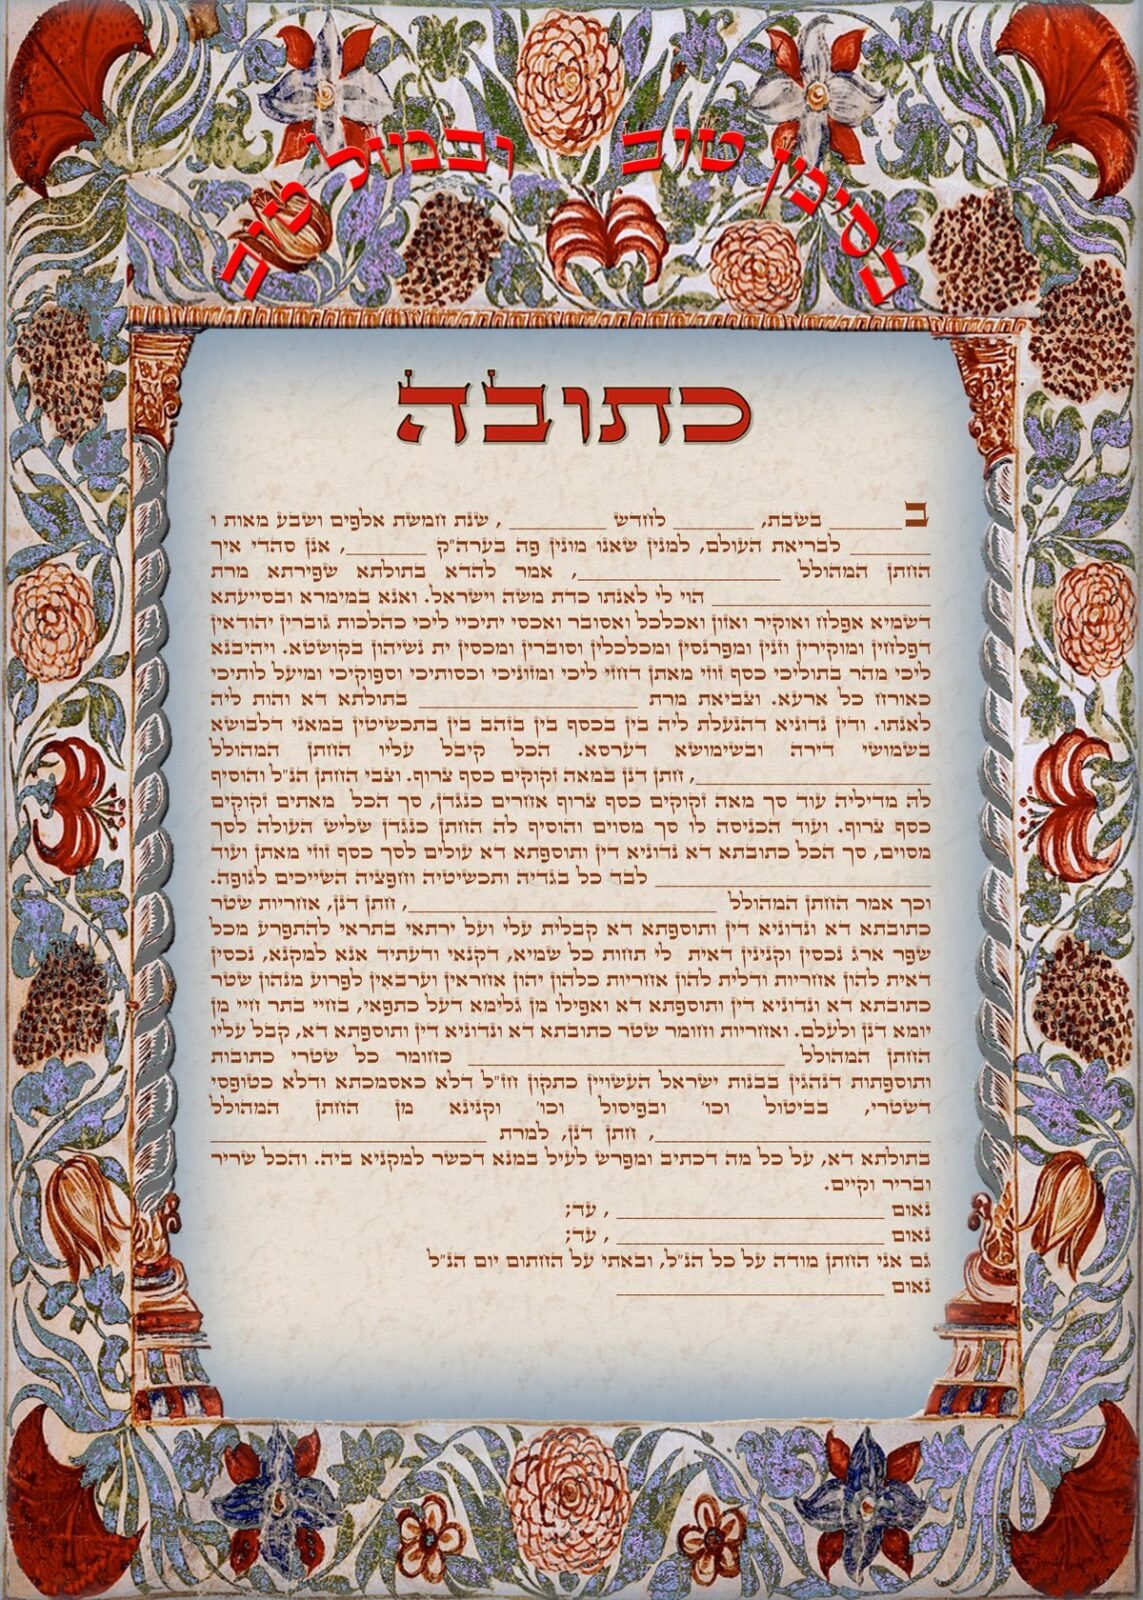 בסימן טוב ובמזל טוב
כתובה
ב_______ בשבת, ________ לחדש __________ , שנת חמשת אלפים ושבע מאות ו
________ לבריאת העולם, למנין שאנו מונין פה בערה״ק ________, אנן סהדי איך
החתן המהולל ____________________, אמר להדא בתולתא שפירתא מרת
______________________ הוי לי לאנתו כדת משה וישראל. ואנא במימרא ובסייעתא
דשמיא אפלח ואוקיר ואזון ואכלכל ואסובר ואכסי יתיכיי ליכי כהלכות גוברין יהודאין
דפלחין ומוקירין וזנין ומפרנסין ומכלכלין וסוברין ומכסין ית נשיהון בקושטא. ויהיבנא
ליכי מהר בתוליכי כסף זוזי מאתן דחזי ליכי ומזוניכי וכסותיכי וספוקיכי ומיעל לותיכי
כאורח כל ארעא. וצביאת מרת ______________________ בתולתא דא והות ליה
לאנתו. ודין נדוניא דהנעלת ליה בין בכסף בין בזהב בין בתכשיטין במאני דלבושא
בשמושי דירה ובשימושא דערסא. הכל קיבל עליו החתן המהולל
________________________, חתן דנן במאה זקוקים כסף צרוף. וצבי החתן הנ״ל והוסיף
לה מדיליה עוד סך מאה זקוקים כסף צרוף אחרים כנגדן, סך הכל מאתים זקוקים
כסף צרוף. ועוד הכניסה לו סך מסוים והוסיף לה החתן כנגדן שליש העולה לסך
מסוים, סך הכל כתובתא דא נדוניא דין ותוספתא דא עולים לסך כסף זוזי מאתן ועוד
____________________________ לבד כל בגדיה ותכשיטיה וחפציה השייכים לגופה.
וכך אמר החתן המהולל ______________________________, חתן דנן, אחריות שטר
כתובתא דא ונדוניא דין ותוספתא דא קבלית עלי ועל ירתאי בתראי להתפרע מכל
שפר ארג נכסין וקנינין דאית לי תחות כל שמיא, דקנאי ודעתיד אנא למקנא, נכסין
דאית להון אחריות ודלית להון אחריות כלהון יהון אחראין וערבאין לפרוע מנהון שטר
כתובתא דא ונדוניא דין ותוספתא דא ואפילו מן גלימא דעל כתפאי, בחיי בתר חיי מן
יומא דנן ולעלם. ואחריות וחומר שטר כתובתא דא ונדוניא דין ותוספתא דא, קבל עליו
החתן המהולל ________________________________ כחומר כל שטרי כתובות
ותוספתות דנהגין בבנות ישראל העשויין כתקון חז״ל דלא כאסמכתא ודלא כטופסי
דשטרי, בביטול וכו׳ ובפיסול וכו׳ וקנינא מן החתן המהולל
____________________________, חתן דנן, למרת ____________________________
בתולתא דא, על כל מה דכתיב ומפרש לעיל במנא דכשר למקניא ביה. והכל שריר
ובריר וקיים.
נאום ___________________________ , עד;
נאום ___________________________ , עד;
גם אני החתן מודה על כל הנ״ל, ובאתי על החתום יום הנ״ל
נאום ___________________________